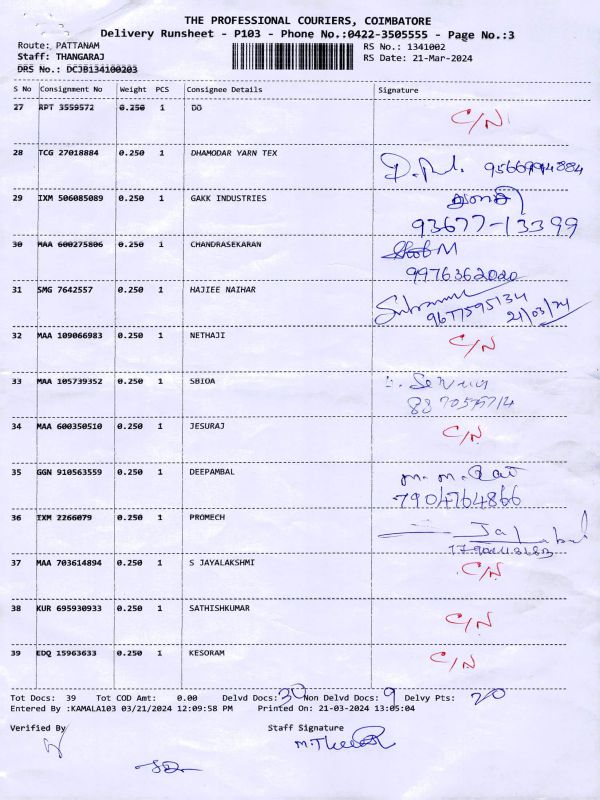 THE PROFESSIONAL COURIERS, COIMBATORE
Delivery Runsheet - P103 - Phone No.:0422-3505555 - Page No.:3
Route: PATTANAM RS No.: 1341002
Staff: THANGARAJ RS Date: 21-Mar-2024
DRS No.: DCJB134100203
S No Consignment No Weight PCS Consignee Details Signature
27 RPT 3559572 0.250 1 DO C/N
28 TCG 27018884 0.250 1 DHAMODAR YARN TEX 9566994884
29 IXM 506085089 0.250 1 GAKK INDUSTRIES
93677-13399
30 MAA 600275806 0.250 1 CHANDRASEKARAN
9976362020
31 SMG 7642557 0.250 1 HAJIEE NAIHAR
9677595134
21/03/24
32 MAA 109066983 0.250 1 NETHAJI C/N
33 MAA 105739352 0.250 1 SBIOA
34 MAA 600350510 0.250 1 JESURAJ C/N
35 GGN 910563559 0.250 1 DEEPAMBAL
7904764866
36 IXM 2266079 0.250 1 PROMECH
37 MAA 703614894 0.250 1 S JAYALAKSHMI C/N
38 KUR 695930933 0.250 1 SATHISHKUMAR C/N
39 EDQ 15963633 0.250 1 KESORAM C/N
Tot Docs: 39 Tot COD Amt: 0.00 Delvd Docs: 30 Non Delvd Docs: 9 Delvy Pts: 20
Entered By :KAMALA103 03/21/2024 12:09:58 PM Printed On: 21-03-2024 13:05:04
Verified By Staff Signature